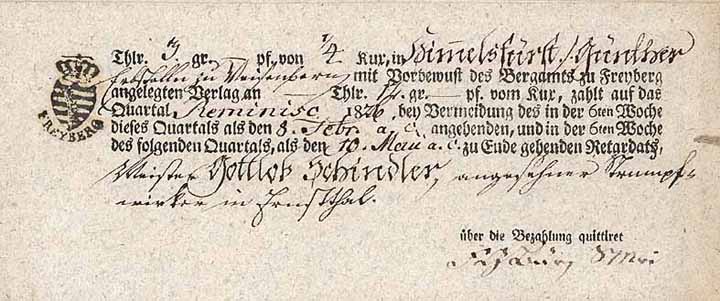 FREYBERG
Thlr. 3 gr. pf. von 1/4 Kux, in Himmelsfürst, / Günther
Erbstolln zu mit Vorbewust des Bergamts zu Freyberg
angelegten Verlag an — Thlr. 12 gr. — pf. vom Kux, zahlt auf das
Quartal Reminisc. 1826, bey Vermeidung des in der 6ten Woche
dieses Quartals als den 8. Febr. a. c. angehenden, und in der 6ten Woche
des folgenden Quartals, als den 10. May a. c. zu Ende gehenden Retardats,
Meister Gottlob Schindler, angesehner Strumpf-
wirker in Ernstthal.
über die Bezahlung quittiret